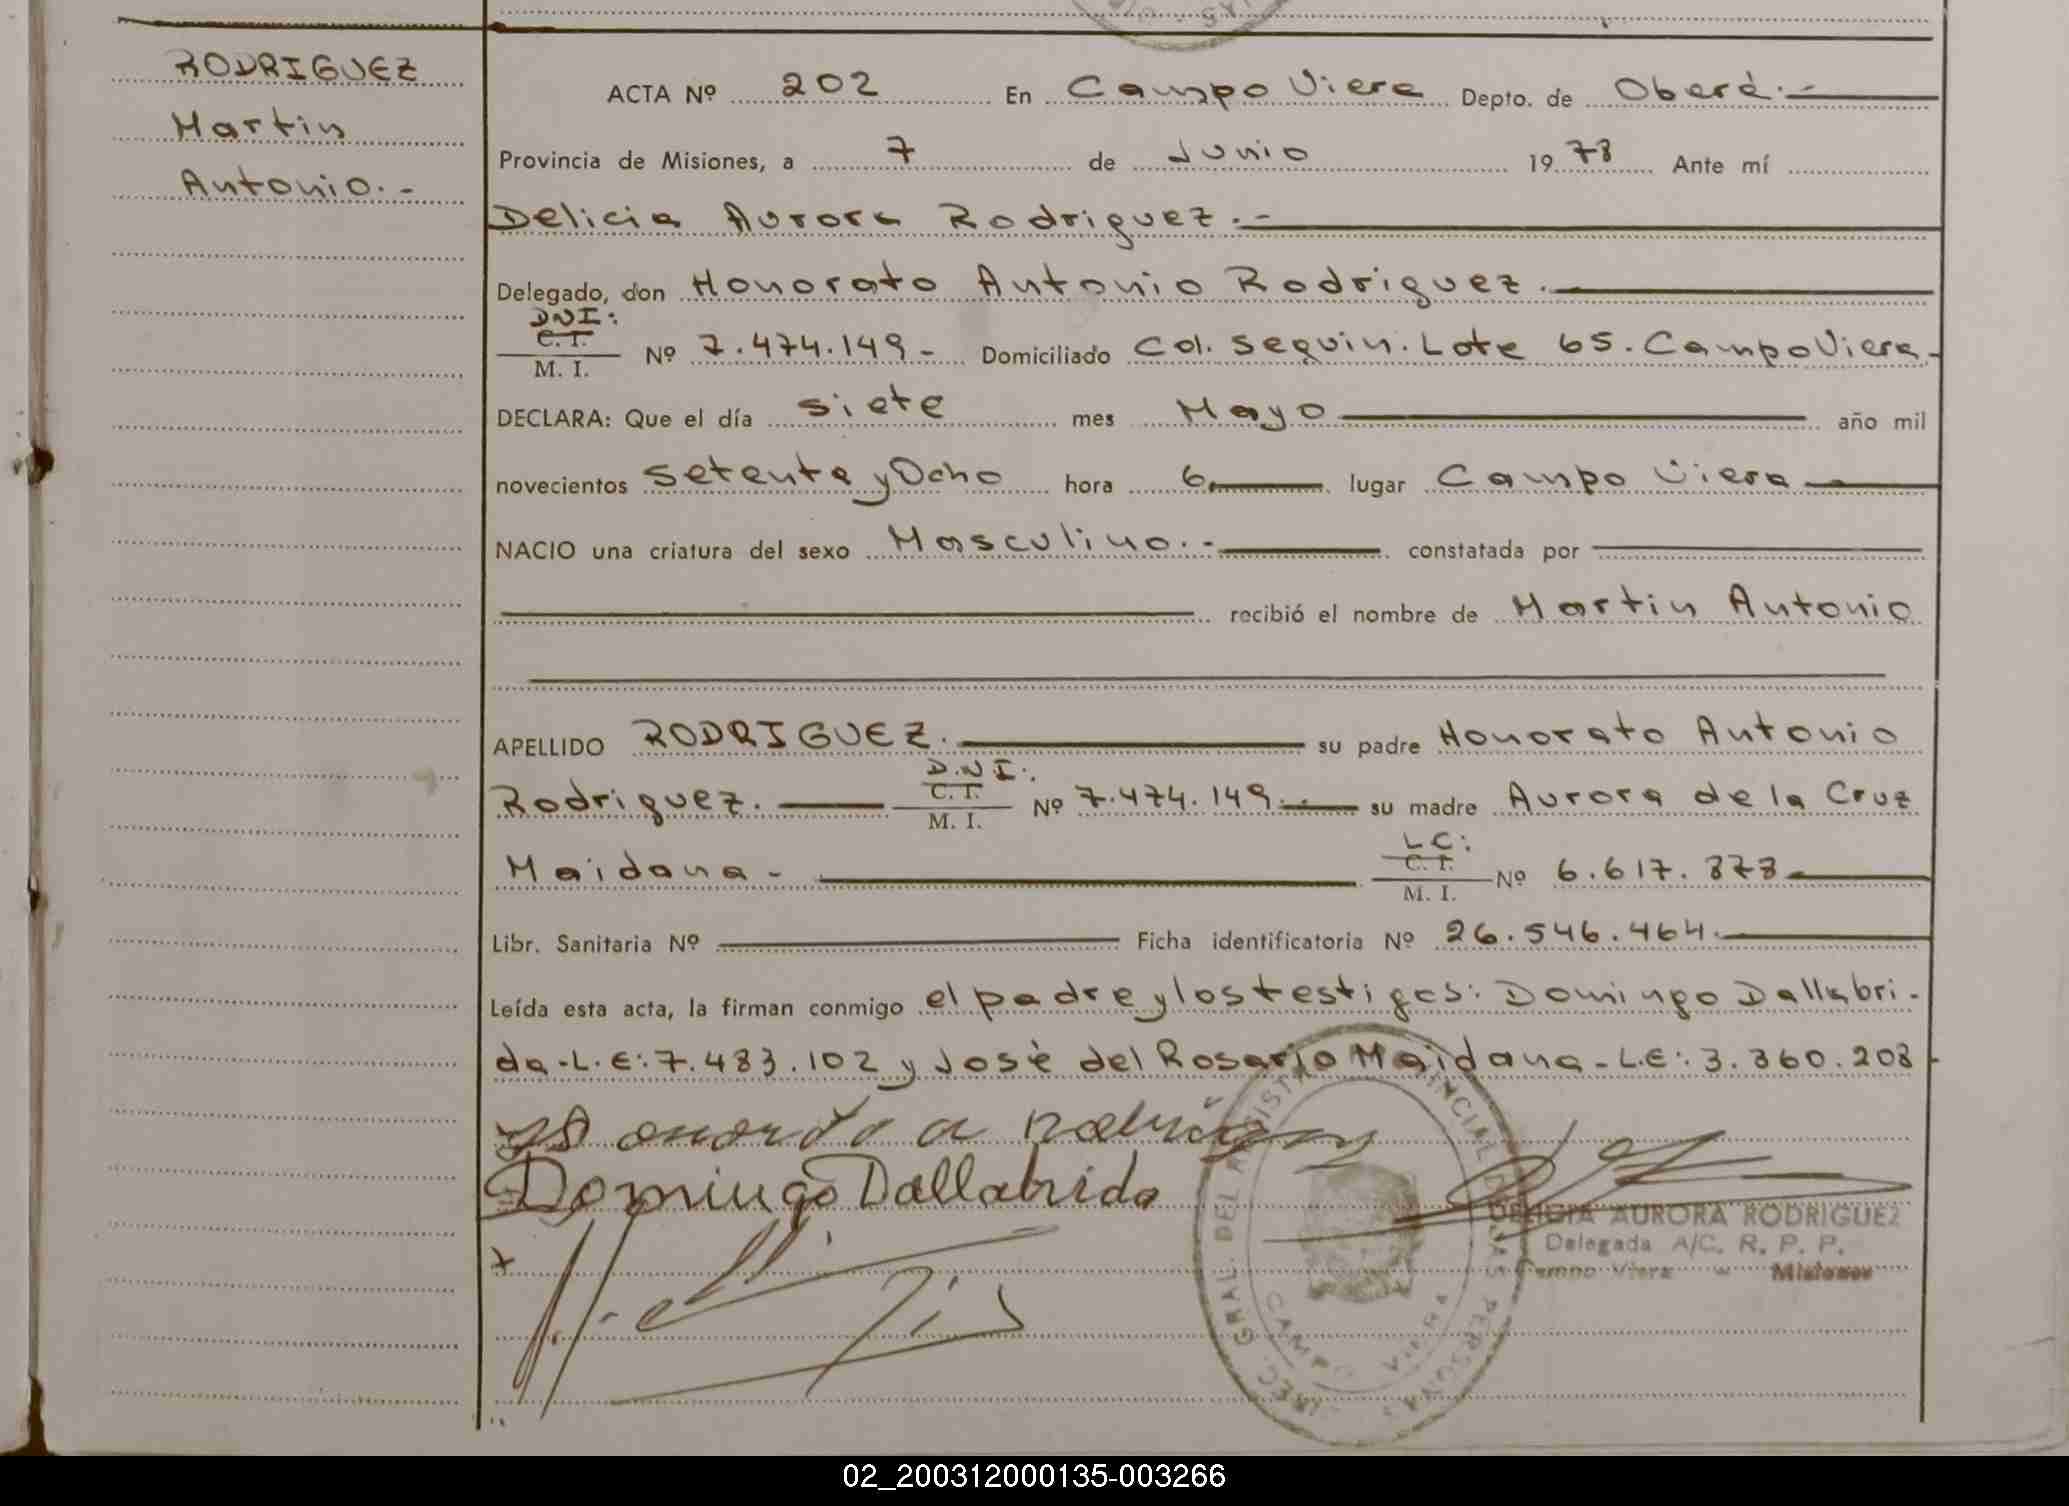 RODRIGUEZ
Martin
Antonio.-
ACTA Nº 202 En Campo Viera Depto. de Oberá.-
Provincia de Misiones, a 7 de Junio 1978 Ante mí
Delicia Aurora Rodriguez.-
Delegado, don Honorato Antonio Rodriguez.
DNI:
C. I.
M. I. Nº 7.474.149- Domiciliado Col. Seguin. Lote 65. Campo Viera.-
DECLARA: Que el día siete mes Mayo año mil
novecientos setenta y Ocho hora 6 lugar Campo Viera
NACIO una criatura del sexo Masculino.- constatada por
recibió el nombre de Martin Antonio
APELLIDO RODRIGUEZ. su padre Honorato Antonio
D.N.I:.
C. I.
Rodriguez. M. I. Nº 7.474.149.- su madre Aurora de la Cruz
LC:
C. I.
Maidana- M. I. Nº 6.617.878
Libr. Sanitaria Nº Ficha identificatoria Nº 26.546.464.
Leída esta acta, la firman conmigo el padre y los testigos: Domingo Dallabri-
da-L.E:7.483.102 y José del Rosario Maidana-L.E:3.360.208-
Domingo Dallabrida
DELICIA AURORA RODRIGUEZ
Delegada A/C. R. P. P.
Campo Viera - Misiones
DIREC. GRAL. DEL REGISTRO PROVINCIAL DE LAS PERSONAS
CAMPO VIERA
02_200312000135-003266